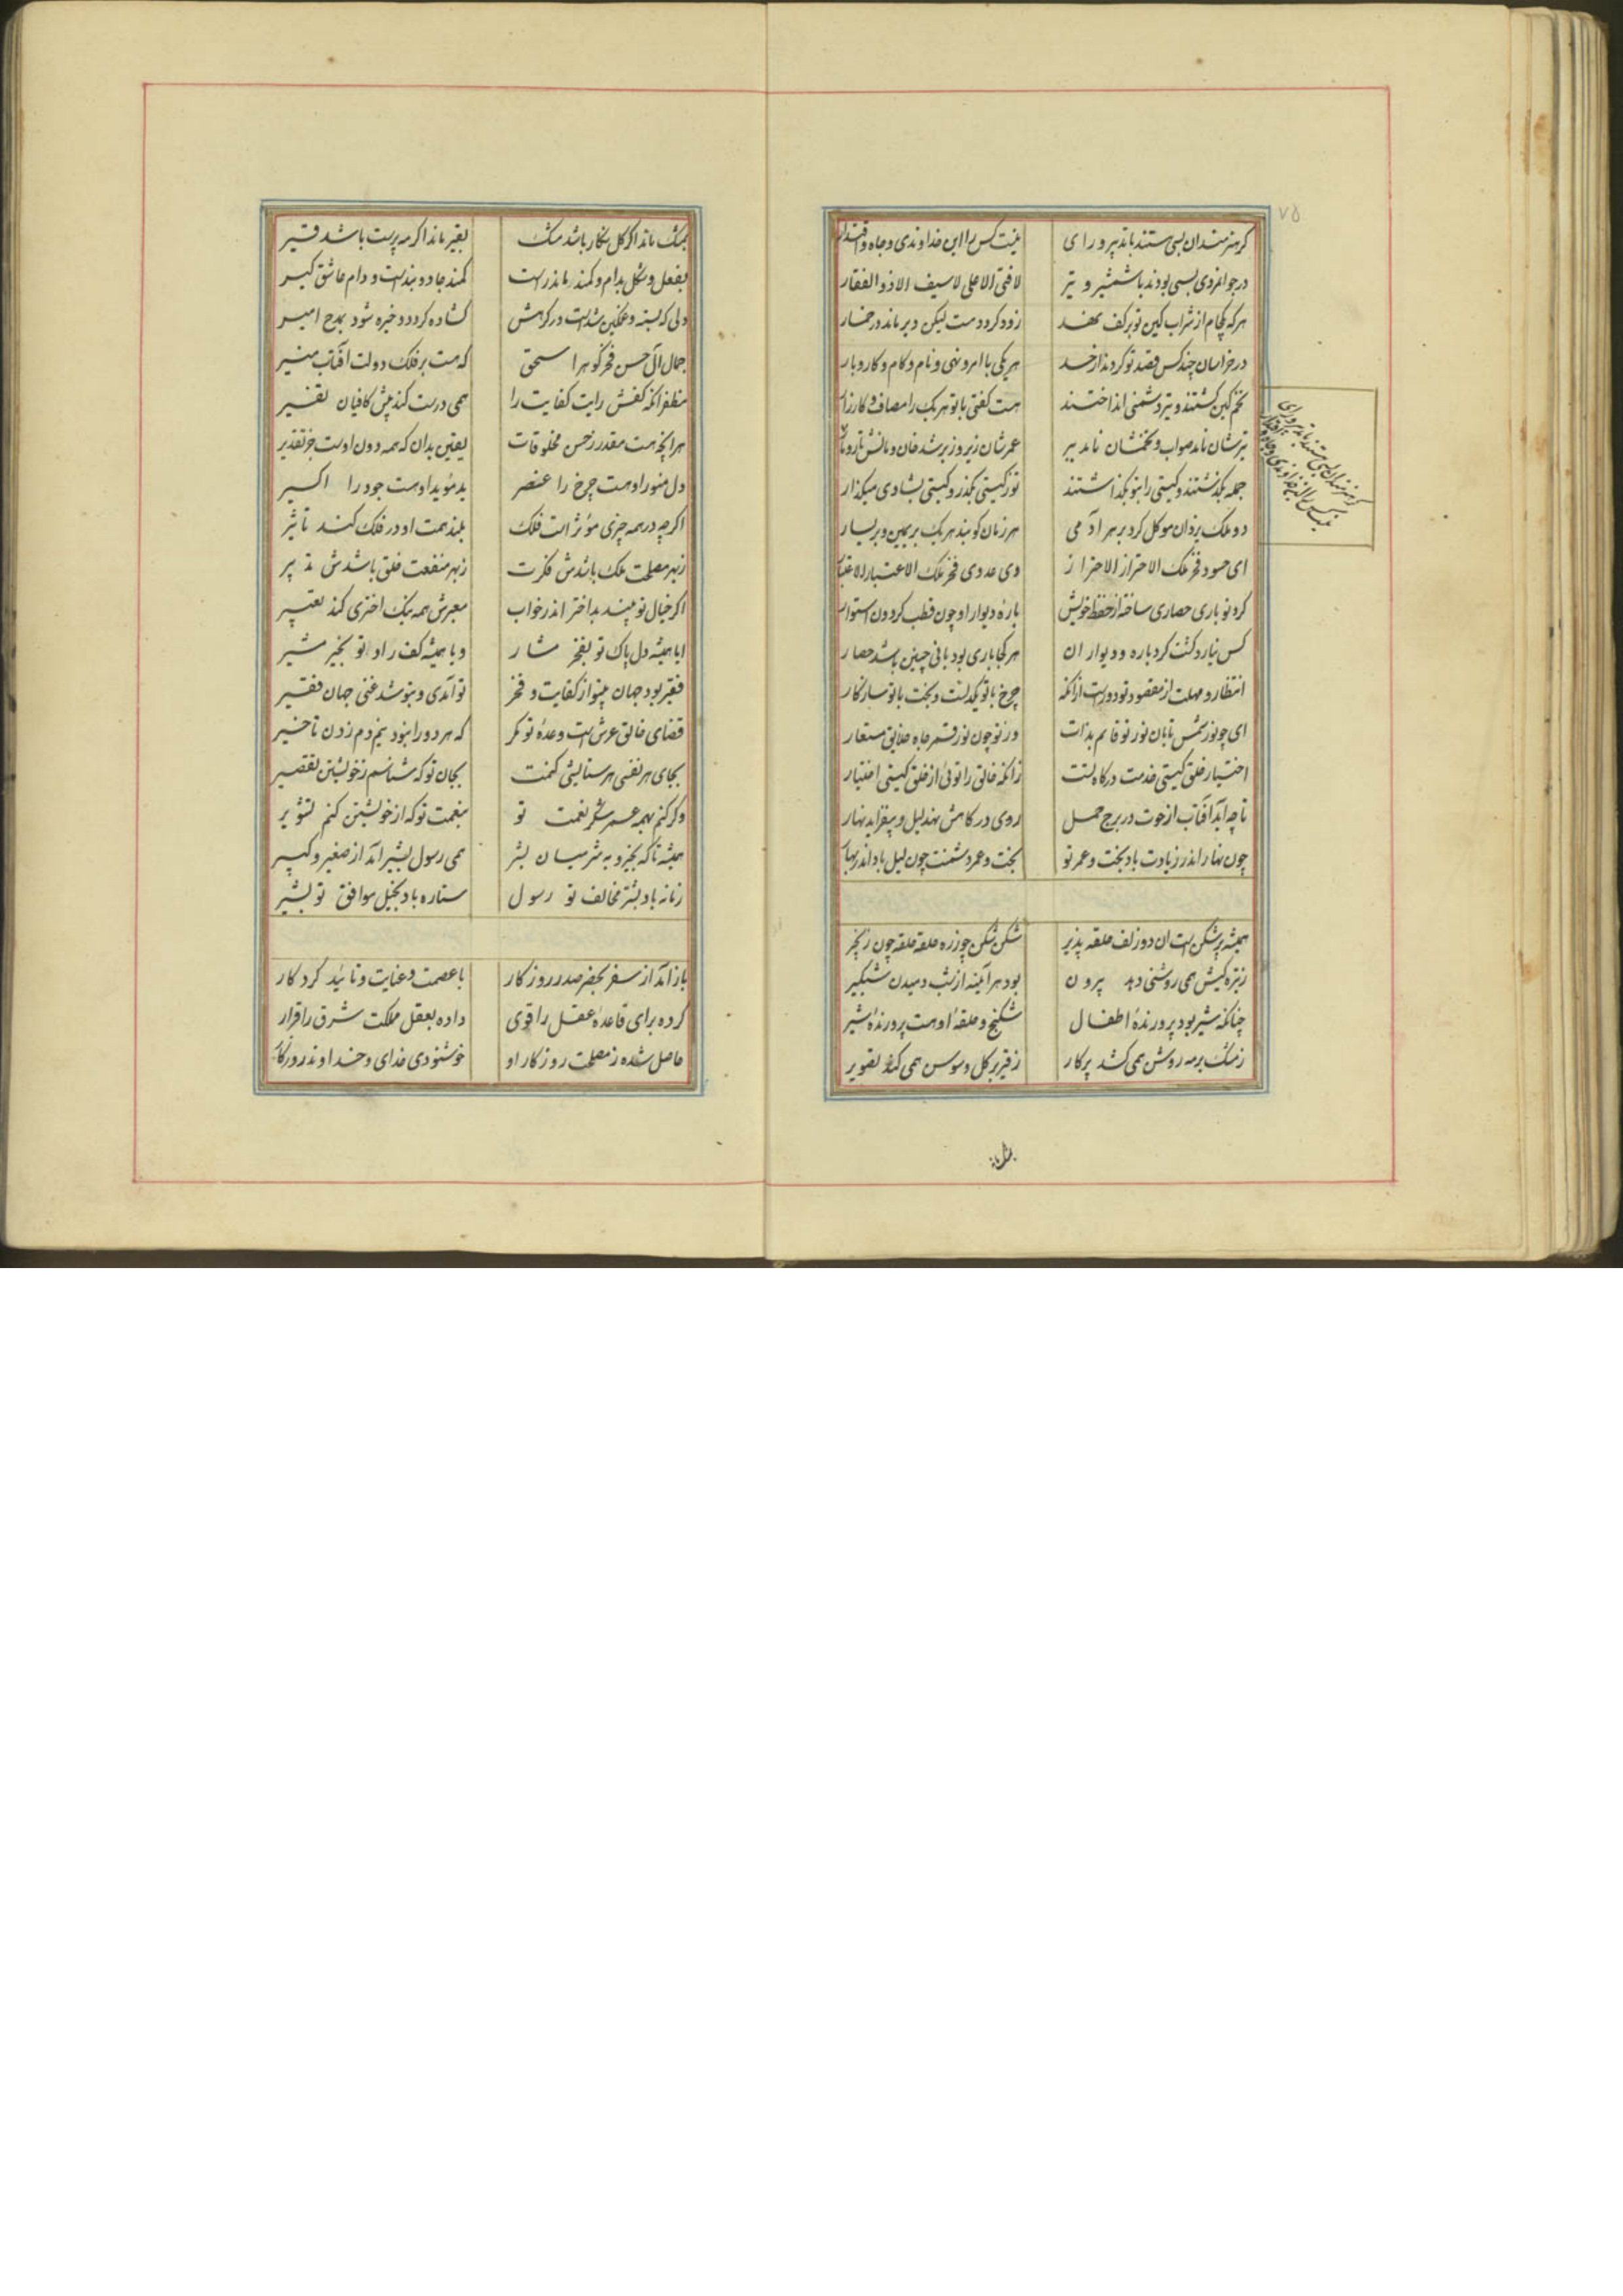 ۷۵
کر هنرمندان بسی هستند با تدبیر و رای
نیست کس را این خداوندی و جاه و اقتدار
در جوانمردی بسی بودند با شمشیر و تیر
لا فتی الا علی لا سیف الا ذو الفقار
هر که یکجام از شراب کین تو بر کف نهد
زود کردد مست لیکن دیر ماند در خمار
در خراسان چند کس قصد تو کردند از حسد
هر یکی با امر و نهی و نام و کام و کار و بار
تخم کین کشتند و تیر دشمنی انداختند
هست کفتی با تو هر یک را مصاف و کارزار
تیرشان نامد صواب و تخمشان نامد ببر
عمرشان زیر و زبر شد خان و مانشان تار و مار
جمله بکذشتند و کیتی را بتو بکذاشتند
تو ز کیتی مکذر و کیتی بشادی میکذار
دو ملک یزدان موکل کرد بر هر آدمی
هر زمان کو بند هر یک بر یمین و بر یسار
ای حسود فخر ملک الاحتراز الاحتراز
وی عدوی فخر ملک الاعتبار الاعتبار
کرد تو باری حصاری ساخته از حفظ خویش
باره دیوار او چون قطب کردون استوار
کس نیارد کشت کرد باره و دیوار ان
هر کجا باری بود بانی چنین باشد حصار
انتظار و مهلت از مقصود تو دورست از انکه
چرخ با تو یکدلست و بخت با تو سازکار
ای چو نور شمس تابان نور تو قایم بذات
ور نه چون نور قمر جاه خلایق مستعار
اختیار خلق کیتی خدمت درکاه تست
زانکه خالق را توئی از خلق کیتی اختیار
تا چو آید آفتاب از حوت در برج حمل
روی در کاهش نهد لیل و بیفزاید نهار
چون نهار اندر زیادت باد بخت و عمر تو
بخت و عمر دشمنت چون لیل باد اندر نهار
همیشه پر شکن است ان دو زلف حلقه پذیر
شکن شکن چو زره حلقه حلقه چون زنجیر
ز تیره کیش همی روشنی دهد بیرون
بود هر آینه از شب دمیدن شبکیر
چنانکه شیر بود پرورنده اطفال
شکنج و حلقه او هست پرورنده شیر
ز مشک بر مه روشن همی کشد پرکار
ز قیر بر کل و سوسن همی کند تصویر
بمشک ماند اکر کل نکار باشد مشک
بقیر ماند اکر مه پرست باشد قیر
بفعل و شکل بدام و کمند ماند راست
کمند جادو بندست و دام عاشق کیر
دلی که بسته و غمکین شدست در کرهش
کشاده کردد و خیره شود بمدح امیر
جمال آل حسن فخر کوهر اسحق
که هست بر فلک دولت آفتاب منیر
مظفر انکه کفش رایت کفایت را
همی درست کند پیش کافیان تفسیر
هر انچه هست مقدر ز حسن مخلوقات
یقین بدان که همه دون اوست جز تقدیر
دل منور او هست چرخ را عنصر
ید موید او هست جود را اکسیر
اکر چه در همه چیزی موثر است فلک
بلند همت او در فلک کند تاثیر
ز بهر مصلحت ملک باشدش فکرت
ز بهر منفعت خلق باشدش تدبیر
اکر خیال تو بیند بد اختر اندر خواب
معبرش همه نیک اختری کند تعبیر
ایا همیشه دل پاک تو بفخر مشار
و یا همیشه کف راد تو بخیر مشیر
فقیر بود جهان بیتو از کفایت و فخر
تو آمدی و بتو شد غنی جهان فقیر
قضای خالق عرش است وعده تو مکر
که هر دو را نبود نیم دم زدن تاخیر
بجای هر نفسی هر ستایشی کمنت
بجان تو که شناسم ز خویشتن تقصیر
وکر کنم همه عمر شکر نعمت تو
بنعمت تو که از خویشتن کنم تشویر
همیشه تا که بخیر و بشر میان بشر
همی رسول بشیر آید از صغیر و کبیر
زمانه باد بشر مخالف تو رسول
ستاره باد بخیل موافق تو بشیر
باز آمد از سفر بحضر صدر روزکار
با عصمت و عنایت و تائید کردکار
کرده برای قاعده عقل را قوی
داده بعقل مملکت شرق را قرار
حاصل شده ز مصلحت روزکار او
خوشنودی خدای و خداوند روزکار
کر هنرمندان بسی هستند با تدبیر و رای